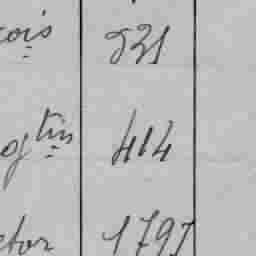 çois 931
gtin 414
ctor 1795